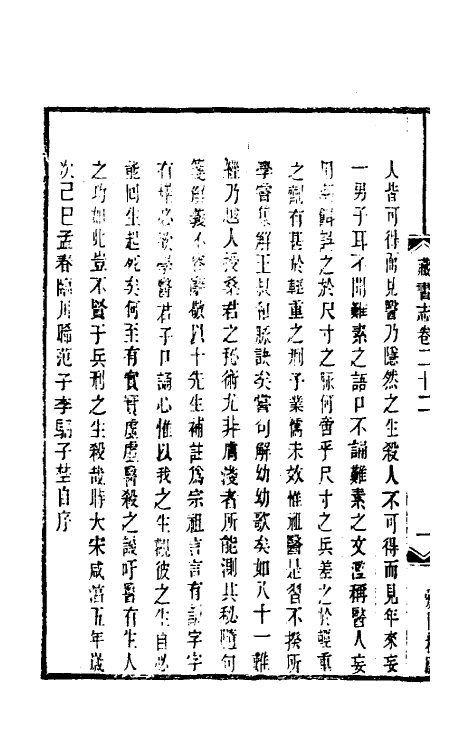 人皆可得而見醫乃隱然之生殺人不可得而見年來妄
一男子耳不聞難素之語口不誦難素之文濫稱醫人妄
用藥餌誤之於尺寸之脉何啻乎尺寸之兵差之於輕重
之劑有甚於輕重之刑予業儒未效惟祖醫是習不揆所
學嘗集解王叔和脉訣矣嘗句解幼幼歌矣如八十一難
經乃越人授桑君之秘術尤非膚淺者所能測其秘隨句
箋解義不容辭敬以十先生補註爲宗祖言言有訓字字
有釋必欲學醫君子口誦心惟以我之生觀彼之生自必
能回生起死矣何至有實實虛虛醫殺之譏吁醫有生人
之功如此豈不賢于兵刑之生殺哉時大宋咸淳五年歲
次己巳孟春臨川晞范子李駉子埜自序
藏書志卷二十二
一